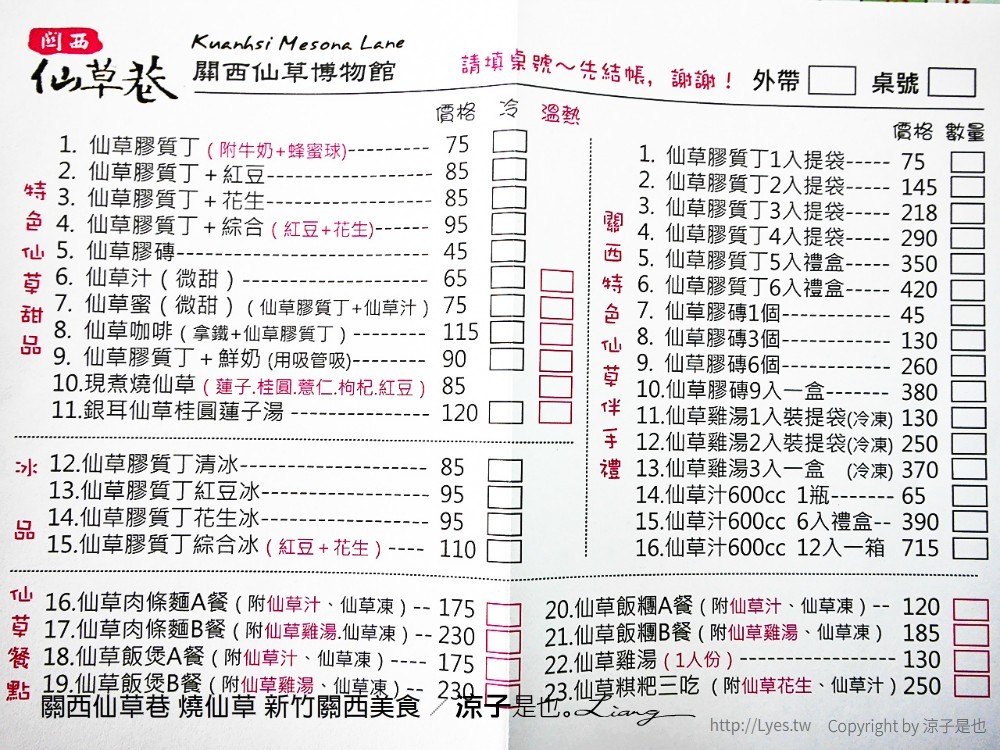 關西
仙草巷
Kuanhsi Mesona Lane
關西仙草博物館
請填桌號～先結帳，謝謝！ 外帶 桌號
價格 冷 溫熱
特色仙草甜品
1. 仙草膠質丁（附牛奶+蜂蜜球)--------- 75
2. 仙草膠質丁＋紅豆------------------ 85
3. 仙草膠質丁＋花生------------------ 85
4. 仙草膠質丁＋綜合（紅豆+花生)------ 95
5. 仙草膠磚-------------------------- 45
6. 仙草汁（微甜）-------------------- 65
7. 仙草蜜（微甜）（仙草膠質丁+仙草汁） 75
8. 仙草咖啡（拿鐵+仙草膠質丁）-------- 115
9. 仙草膠質丁＋鮮奶 (用吸管吸)-------- 90
10.現煮燒仙草（蓮子.桂圓.薏仁.枸杞.紅豆） 85
11.銀耳仙草桂圓蓮子湯 --------------- 120
冰品
12.仙草膠質丁清冰-------------------- 85
13.仙草膠質丁紅豆冰------------------ 95
14.仙草膠質丁花生冰------------------ 95
15.仙草膠質丁綜合冰（紅豆＋花生）---- 110
價格 數量
關西特色仙草伴手禮
1. 仙草膠質丁1入提袋----- 75
2. 仙草膠質丁2入提袋----- 145
3. 仙草膠質丁3入提袋----- 218
4. 仙草膠質丁4入提袋----- 290
5. 仙草膠質丁5入禮盒----- 350
6. 仙草膠質丁6入禮盒----- 420
7. 仙草膠磚1個------------ 45
8. 仙草膠磚3個------------ 130
9. 仙草膠磚6個------------ 260
10.仙草膠磚9入一盒------- 380
11.仙草雞湯1入裝提袋(冷凍) 130
12.仙草雞湯2入裝提袋(冷凍) 250
13.仙草雞湯3入一盒 (冷凍) 370
14.仙草汁600cc 1瓶------- 65
15.仙草汁600cc 6入禮盒-- 390
16.仙草汁600cc 12入一箱 715
仙草餐點
16.仙草肉條麵A餐（附仙草汁、仙草凍）-- 175
17.仙草肉條麵B餐（附仙草雞湯.仙草凍）-- 230
18.仙草飯煲A餐（附仙草汁、仙草凍）---- 175
19.仙草飯煲B餐（附仙草雞湯、仙草凍）-- 230
20.仙草飯糰A餐（附仙草汁、仙草凍）-- 120
21.仙草飯糰B餐（附仙草雞湯、仙草凍） 185
22.仙草雞湯（1人份）---------------- 130
23.仙草粿粑三吃（附仙草花生、仙草汁）250
關西仙草巷 燒仙草 新竹關西美食 / 涼子是也。Liang
http://Lyes.tw Copyright by 涼子是也